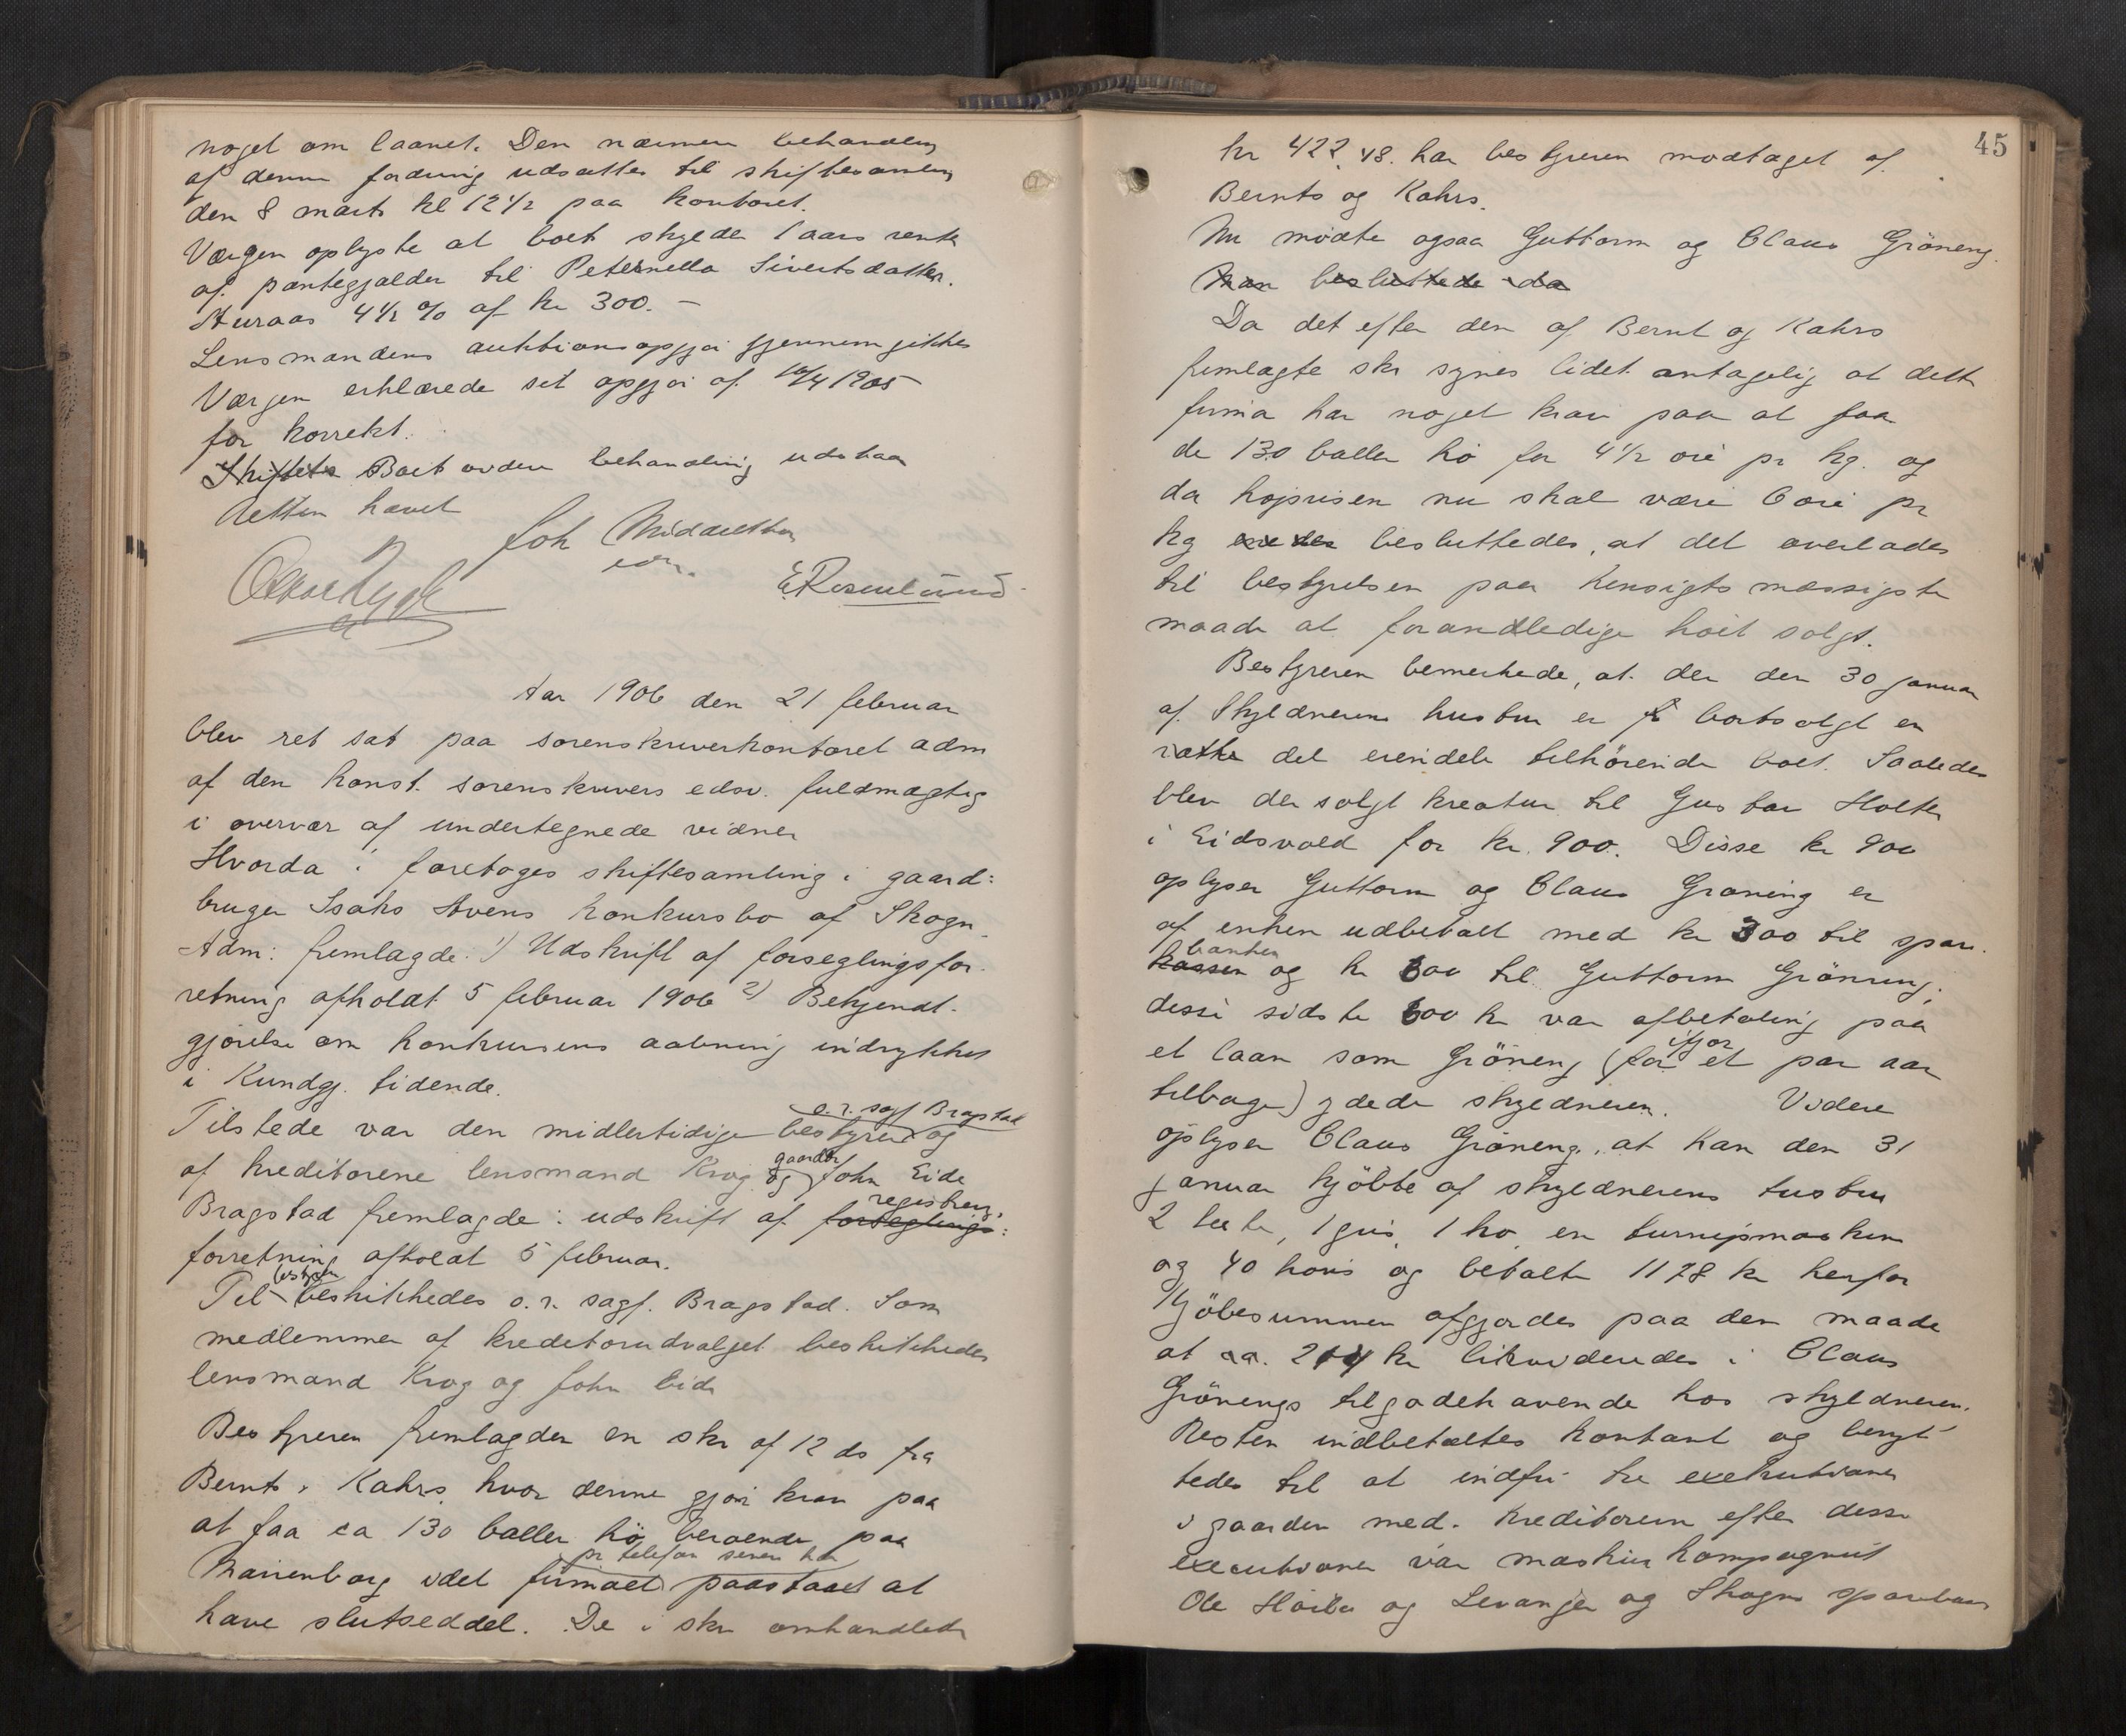 noget om laanet. Den nærmere behandling
af denne fordring udsattes til skiftesamling
den 8 marts kl 12 1/2 paa kontoret.
Værgen oplyste at boet skylder 1 aars rente
af pantegjælden til Peternella Sivertsdatter.
Sturaas 4 1/2 % af kr 300.-
Lensmandens auktionsopgjør gjennemgikkes
Værgen erklærede sit opgjør af 10/4 1905
for korrekt.
Skiftets Boets videre behandling udstaar
Retten hævet
Joh Middelthon
edv.
E. Rosenlund
Aar 1906 den 21 februar
blev ret sat paa sorenskriverkontoret adm
af den konst. sorenskrivers edsv. fuldmægtig
i overvær af undertegnede vidner
Hvorda: foretoges skiftesamling i gaard:
bruger Isaks Avens konkursbo af Skogn.
Adm: fremlagde: 1) Udskrift af forseglingsfor-
retning afholdt 5 februar 1906 2) Bekjendt-
gjørelse om konkursens aabning indrykket
i Kundgj. tidende.
o.r. sagf Bragstad
Tilstede var den midlertidige bestyrer og
gaardbr
af kreditorene lensmand Krog og John Eide
registrerings
Bragstad fremlagde: udskrift af forseglings:
forretning afholdt 5 februar.
bestyrer
Til beskikkedes o.r. sagf. Bragstad. Som
medlemmer af kreditorudvalget beskikkedes
lensmand Krog og John Eide
Bestyreren fremlagde en skr af 12 ds fra
Bernts & Kahrs, hvor denne gjør krav paa
at faa ca 130 baller hø beroende paa
pr telefon senere har
Marienborg idet firmaet paastaaet at
have slutseddel. De i skr omhandlede
45
kr 422.48. har bestyreren modtaget af
Bernts og Kahrs.
Nu mødte ogsaa Guttorm og Claus Gröneng.
Man besluttede da
Da det efter den af Bernt og Kahrs
fremlagte skr synes lidet antagelig at dette
firma har noget krav paa at faa
de 130 baller hø for 4 1/2 øre pr kg. og
da høprisen nu skal være 6 øre pr
kg besluttedes, at det overlades
til bestyrelsen paa hensigtsmæssigste
maade at foranledige høiet solgt.
Bestyreren bemerkede, at der den 30 januar
af Skyldnerens hustru er bortsolgt en
række del eiendele tilhørende boet. Saaledes
blev der solgt kreatur til Gustav Holter
i Eidsvold for kr. 900. Disse kr 900
oplyser Guttorm og Claus Gröning er
af enken udbetalt med kr 300 til spare-
banken
kassen og kr 600 til Guttorm Gröneng;
disse sidste 600 kr var afbetaling paa
ifjor
et laan som Gröneng (for et par aar
tilbage) ydede skyldneren. Videre
oplyser Claus Gröneng, at han den 31
januar kjöbte af skyldnerens hustru
2 heste, 1 gris, 1 ko, en turnipsmaskin
og 40 høns og betalte 1178 kr herfor
Kjöbesummen afgjordes paa den maade
at ca. 214 kr likvideredes i Claus
Grönengs tilgodehavende hos skyldneren.
Resten indbetaltes kontant og benyt-
tedes til at indfri tre exekutioner
i gaarden med. Kreditorerne efter disse
executioner var maskinkompagniet
Ole Høiber og Levanger og Skogns sparebank